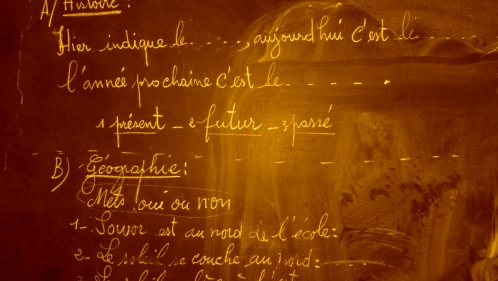 A) Histoire :
Hier indique le - - - -, aujourd'hui c'est le - - - -
l'année prochaine c'est le - - - - .
1 présent - 2 futur - 3 passé
B) Géographie :
Mets oui ou non
1- Sowor est au nord de l'école :
2- Le soleil se couche au nord : - - - -
3- Le soleil